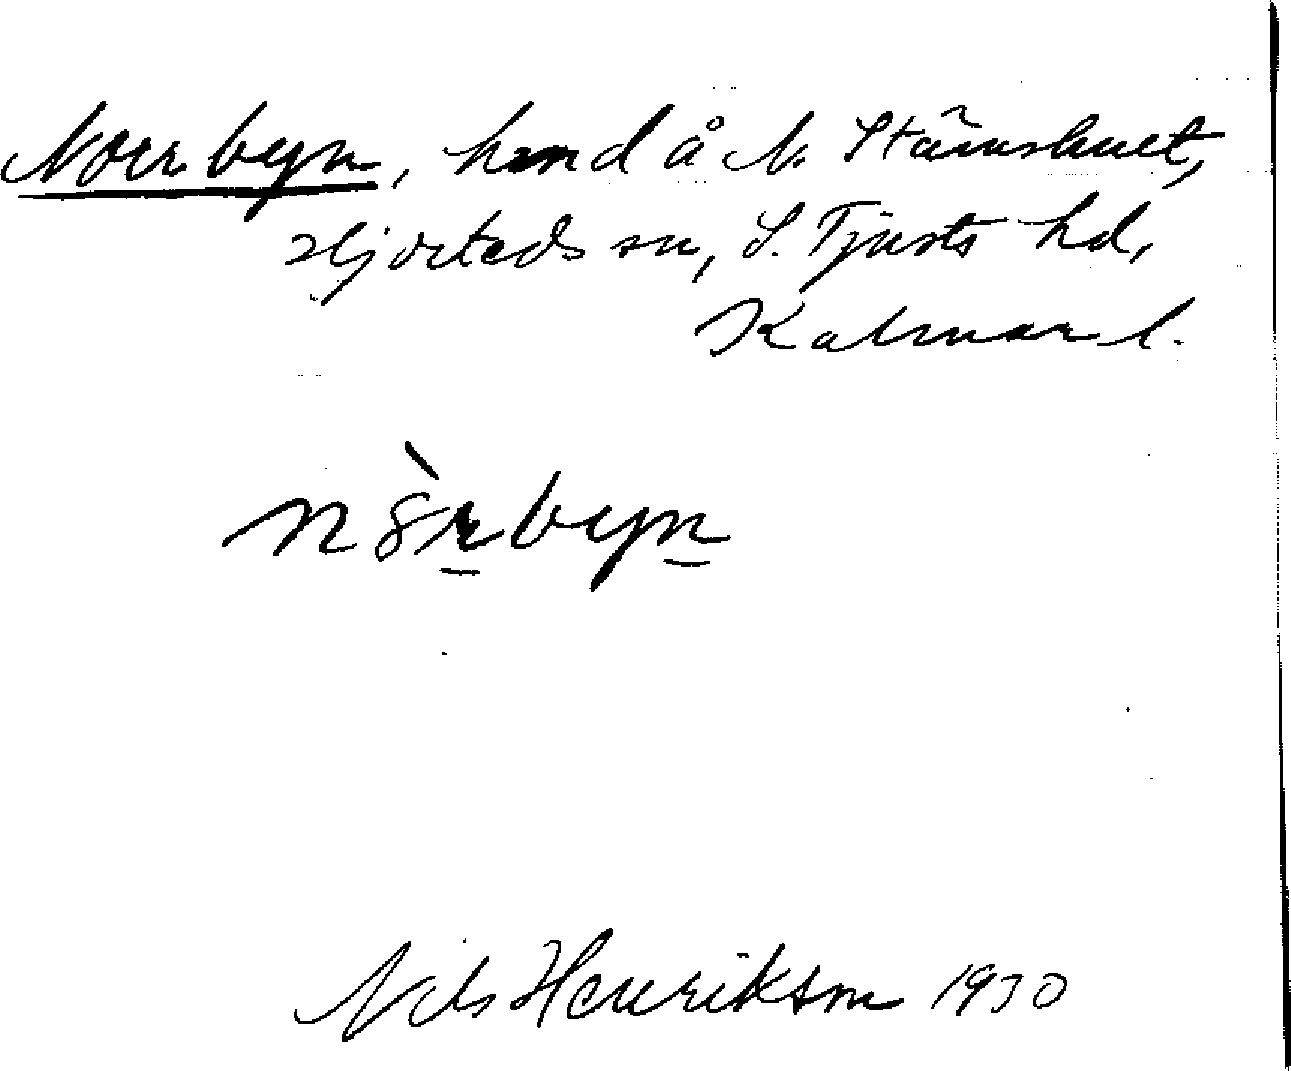 Norrbyn, hmnd å N. Stämshult,
Hjorteds sn, S. Tjusts hd,
Kalmar l.
nòrbyn
Nils Henrikson 1930